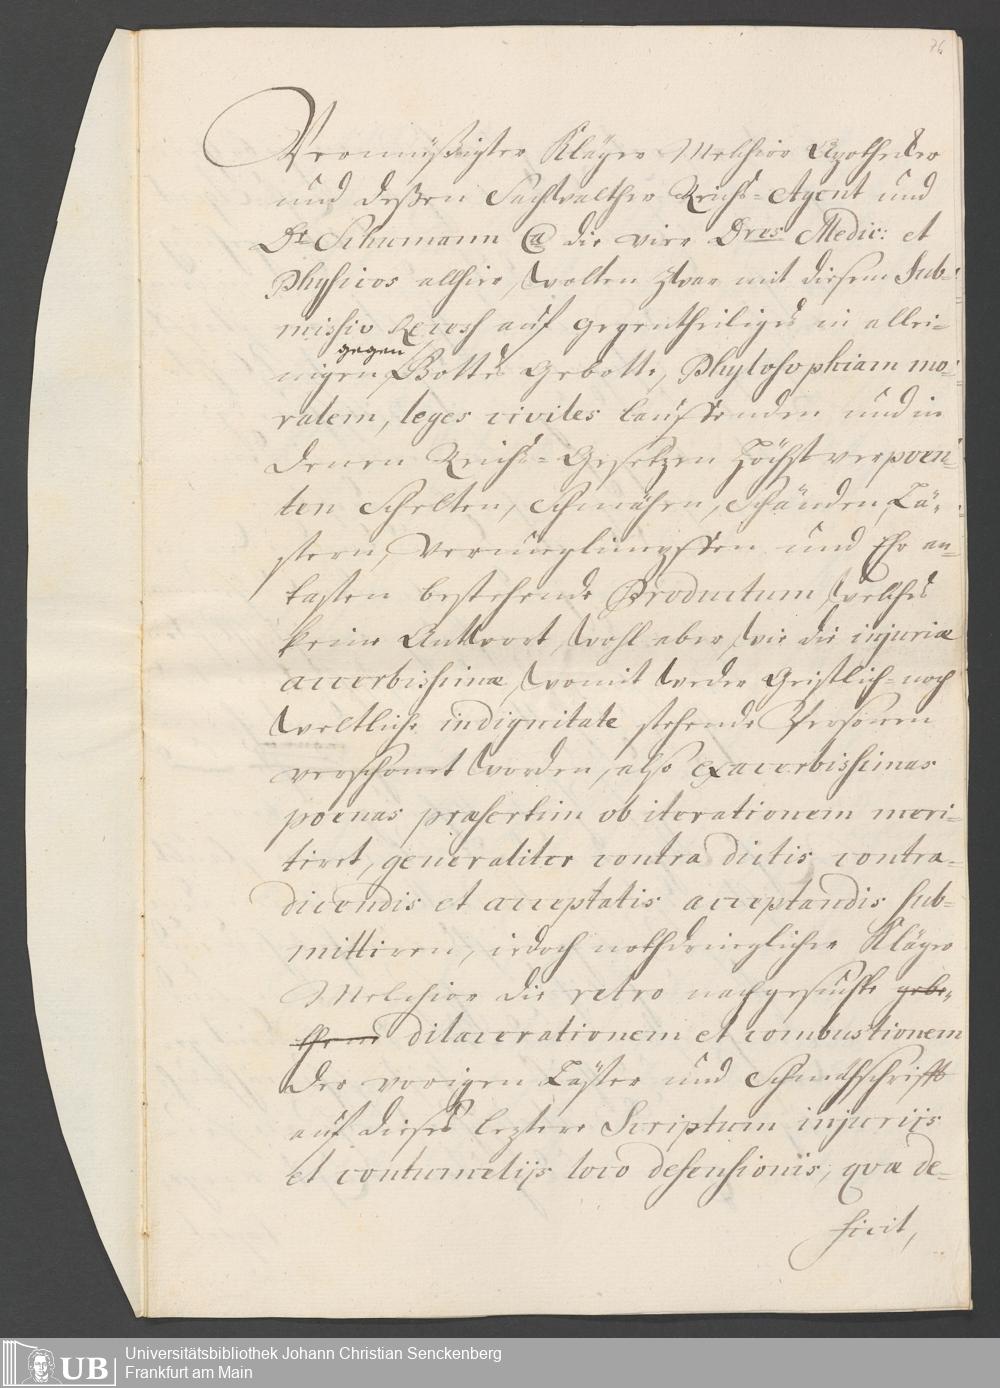 76
Vermüßigter Kläger Melchior Apothecker
und deßen Sachwalther Reichs-Agent und
Dr Schumann Ca die vier Dres Medic: et
Physicos allhier, wolten zwar mit diesem Sub-
missiv Recess auf gegentheiliges in allei-
nigen gegen Gottes Gebotte, Phylosophiam mo-
ralem, leges civiles lauffenden und in
denen Reichs-Gesetzen höchst verpoen-
ten Schelten, Schmähen, Schänden, Lä-
stern, verunglimpffen und Ehr an-
tasten bestehende Productum, welches
keine Antwort, wohl aber, wie die injuriae
acerbissimae, womit weder Geistlich- noch
weltliche indignitate stehende Persohnen
verschonet worden, also exacerbissimas
poenas praesertim ob iterationem meri-
tiret, generaliter contra dictis contra-
dicendis et acceptatis acceptandis sub-
mittiren, iedoch nothdringlicher Kläger
Melchior die retro nachgesuchte gebe-
thene dilacerationem et combustionem
der vorigen Läster und Schmähschrifft
auf dieses leztere Scriptum injuriis
et contumelijs loco defensionis, qvae de-
ficit,
UB Universitätsbibliothek Johann Christian Senckenberg
Frankfurt am Main